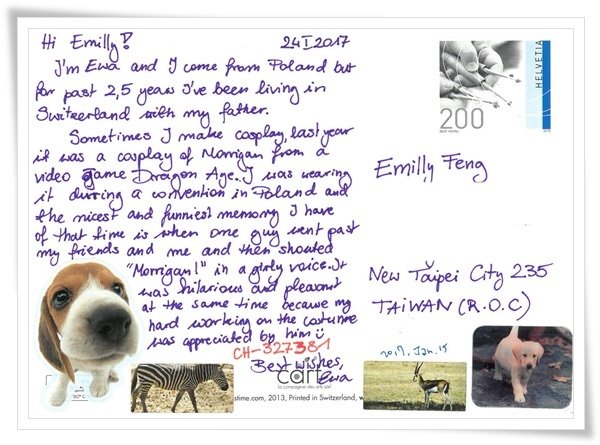 Hi Emilly! 24 I 2017
I'm Ewa and I come from Poland but
for past 2,5 years I've been living in
Switzerland with my father.
Sometimes I make cosplay, last year
it was a cosplay of Morrigan from a
video game Dragon Age. I was wearing
it during a convention in Poland and
the nicest and funniest memory I have
of that time is when one guy went past
my friends and me and then shouted
"Morrigan!" in a girly voice. It
was hilarious and pleasant
at the same time because my
hard working on the costume
was appreciated by him :)
CH-327381
Best wishes,
Ewa
cart
la compagnie des arts sàrl
stime.com, 2013, Printed in Switzerland, w
HELVETIA
200
Emilly Feng
New Taipei City 235
TAIWAN (R.O.C)
2017. Jan. 15